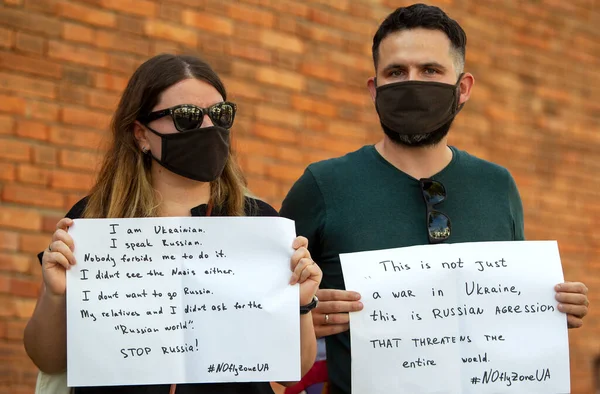 I am Ukrainian.
I speak Russian.
Nobody forbids me to do it.
I didn't see the Nazis either.
I don't want to go Russia.
My relatives and I didn't ask for the
"Russian world".
STOP RUSSIA!
#NOflyZoneUA
„This is not just
a war in Ukraine,
this is RUSSIAN AGRESSION
THAT THREATENS THE
entire world.
#NOflyZoneUA